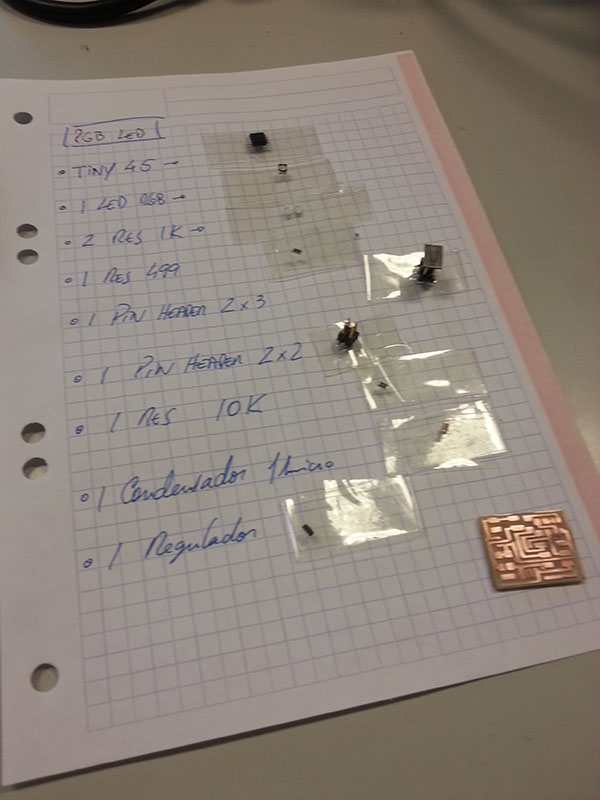 RGB LED
• TINY 45 →
• 1 LED RGB →
• 2 RES 1K →
• 1 RES 499
• 1 PIN HEADER 2x3
• 1 PIN HEADER 2x2
• 1 RES 10K
• 1 Condensador 1 micro
• 1 Regulador